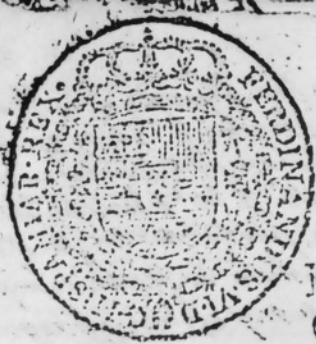 FERDINANDUS VI D G HISPANIAR REX.